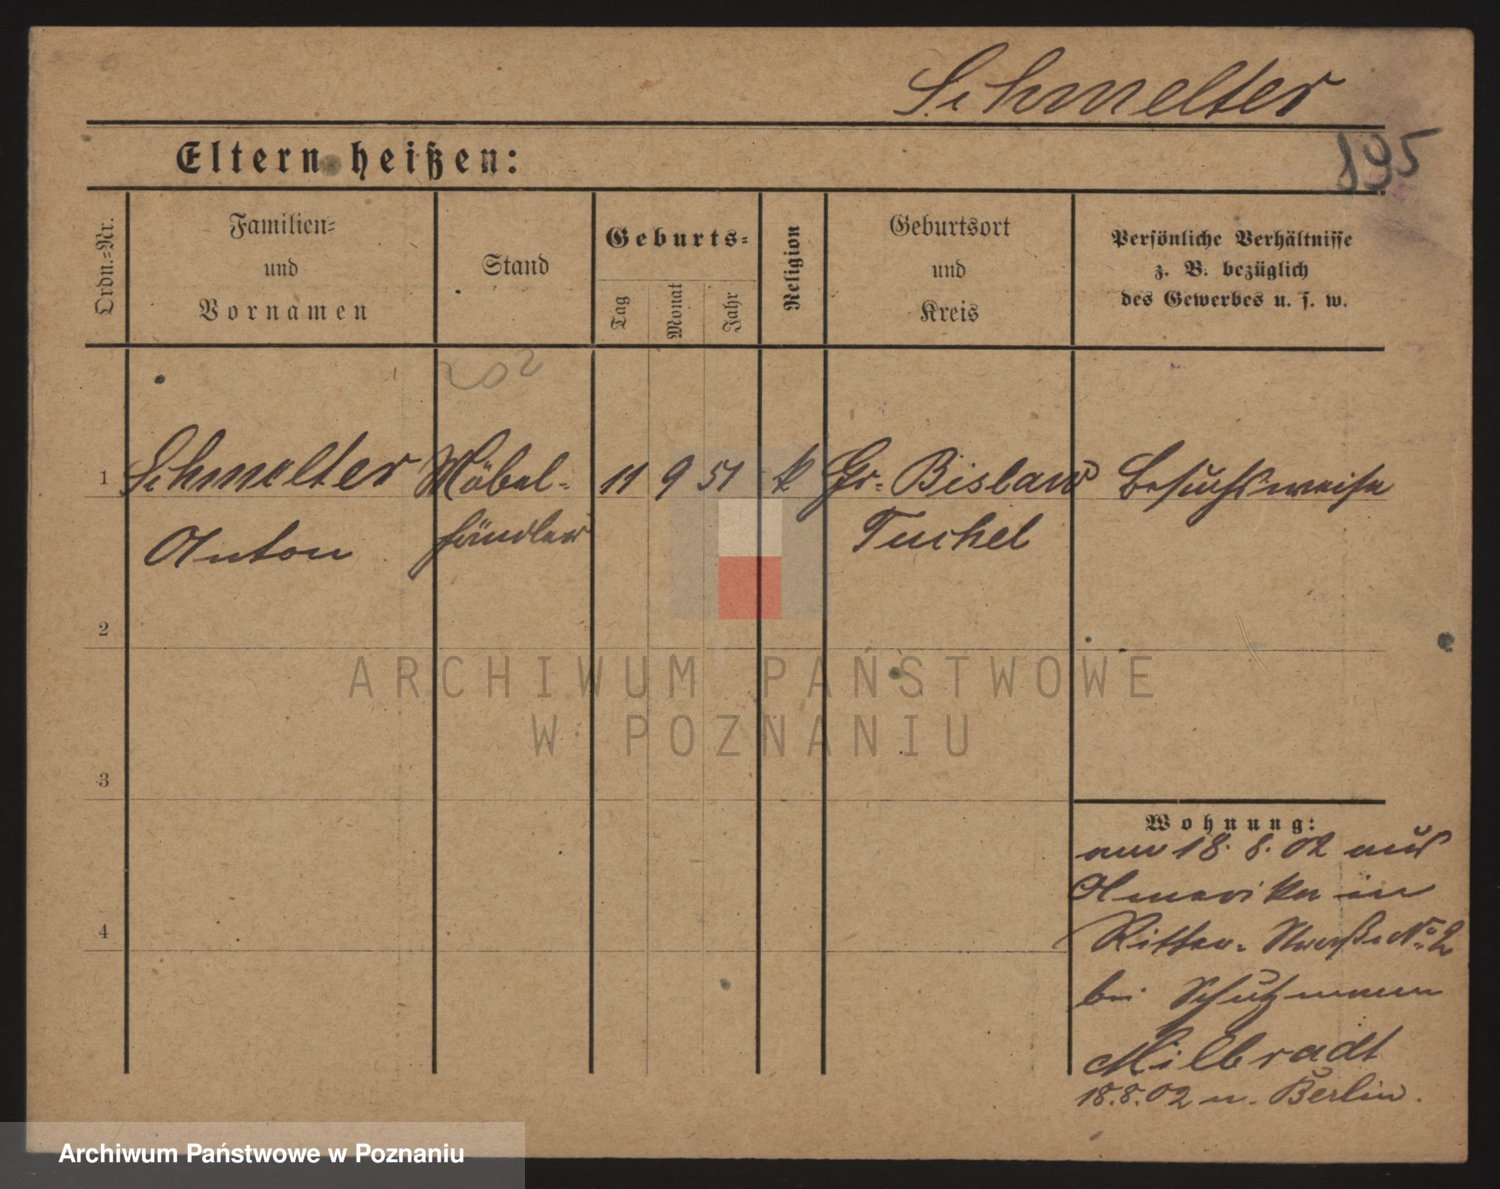 Schmelter
195
Eltern heißen:
Ordn.-Nr.
Familien-
und
Vornamen
Stand
Geburts-
Tag
Monat
Jahr
Religion
Geburtsort
und
Kreis
Persönliche Verhältnisse
z. B. bezüglich
des Gewerbes u. s. w.
202
1 Schmelter Möbel- 11 9 51 k Gr. Bislaw Besuchsweise
Anton händler Tuchel
2
3
4
Wohnung:
am 18. 8. 02 aus
Amerika in
Ritter-Straße No 2
bei Schutzmann
Milbradt
18.8.02 n. Berlin.
ARCHIWUM PAŃSTWOWE
W POZNANIU
Archiwum Państwowe w Poznaniu